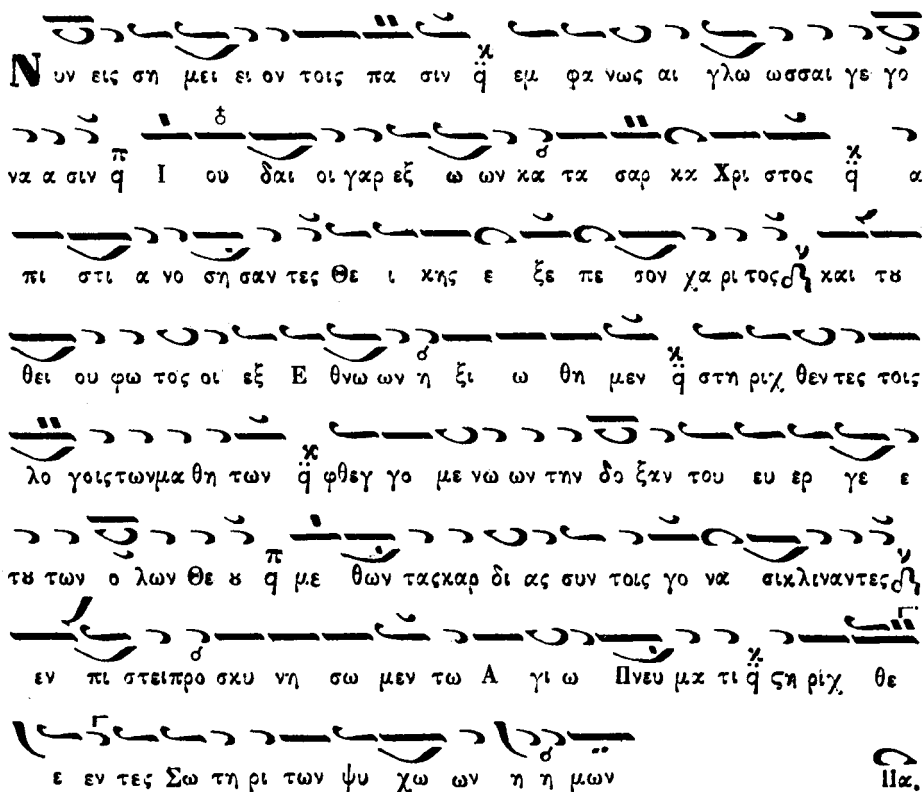 Νυν εις ση μει ει ον τοις πα σιν q̈ ϰ εμ φα νως αι γλω ωσσαι γε γο
να α σιν q π Ι ου δαι οι γαρ εξ ω ων κα τα σαρ κα Χρι στος q̈ ϰ α
πι στι α νο ση σαν τες Θε ι κης ε ξε πε σον χα ρι τος ν και τȣ
θει ου φω τος οι εξ Ε θνω ων η ξι ω θη μεν q̈ ϰ στη ριχ θεν τες τοις
λο γοις των μα θη των q̈ ϰ φθεγ γο με νω ων την δο ξαν του ευ ερ γε ε
τȣ των ο λων Θε ȣ q π με θων τας καρ δι ας συν τοις γο να σι κλι ναν τες ν
εν πι στει προ σκυ νη σω μεν τω Α γι ω Πνευ μα τι q̈ ϰ ϛη ρίχ θε
ε εν τες Σω τη ρι των ψυ χω ων η η μων Πα.